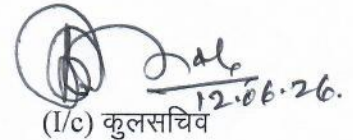 12.06.26.
(I/c) कुलसचिव